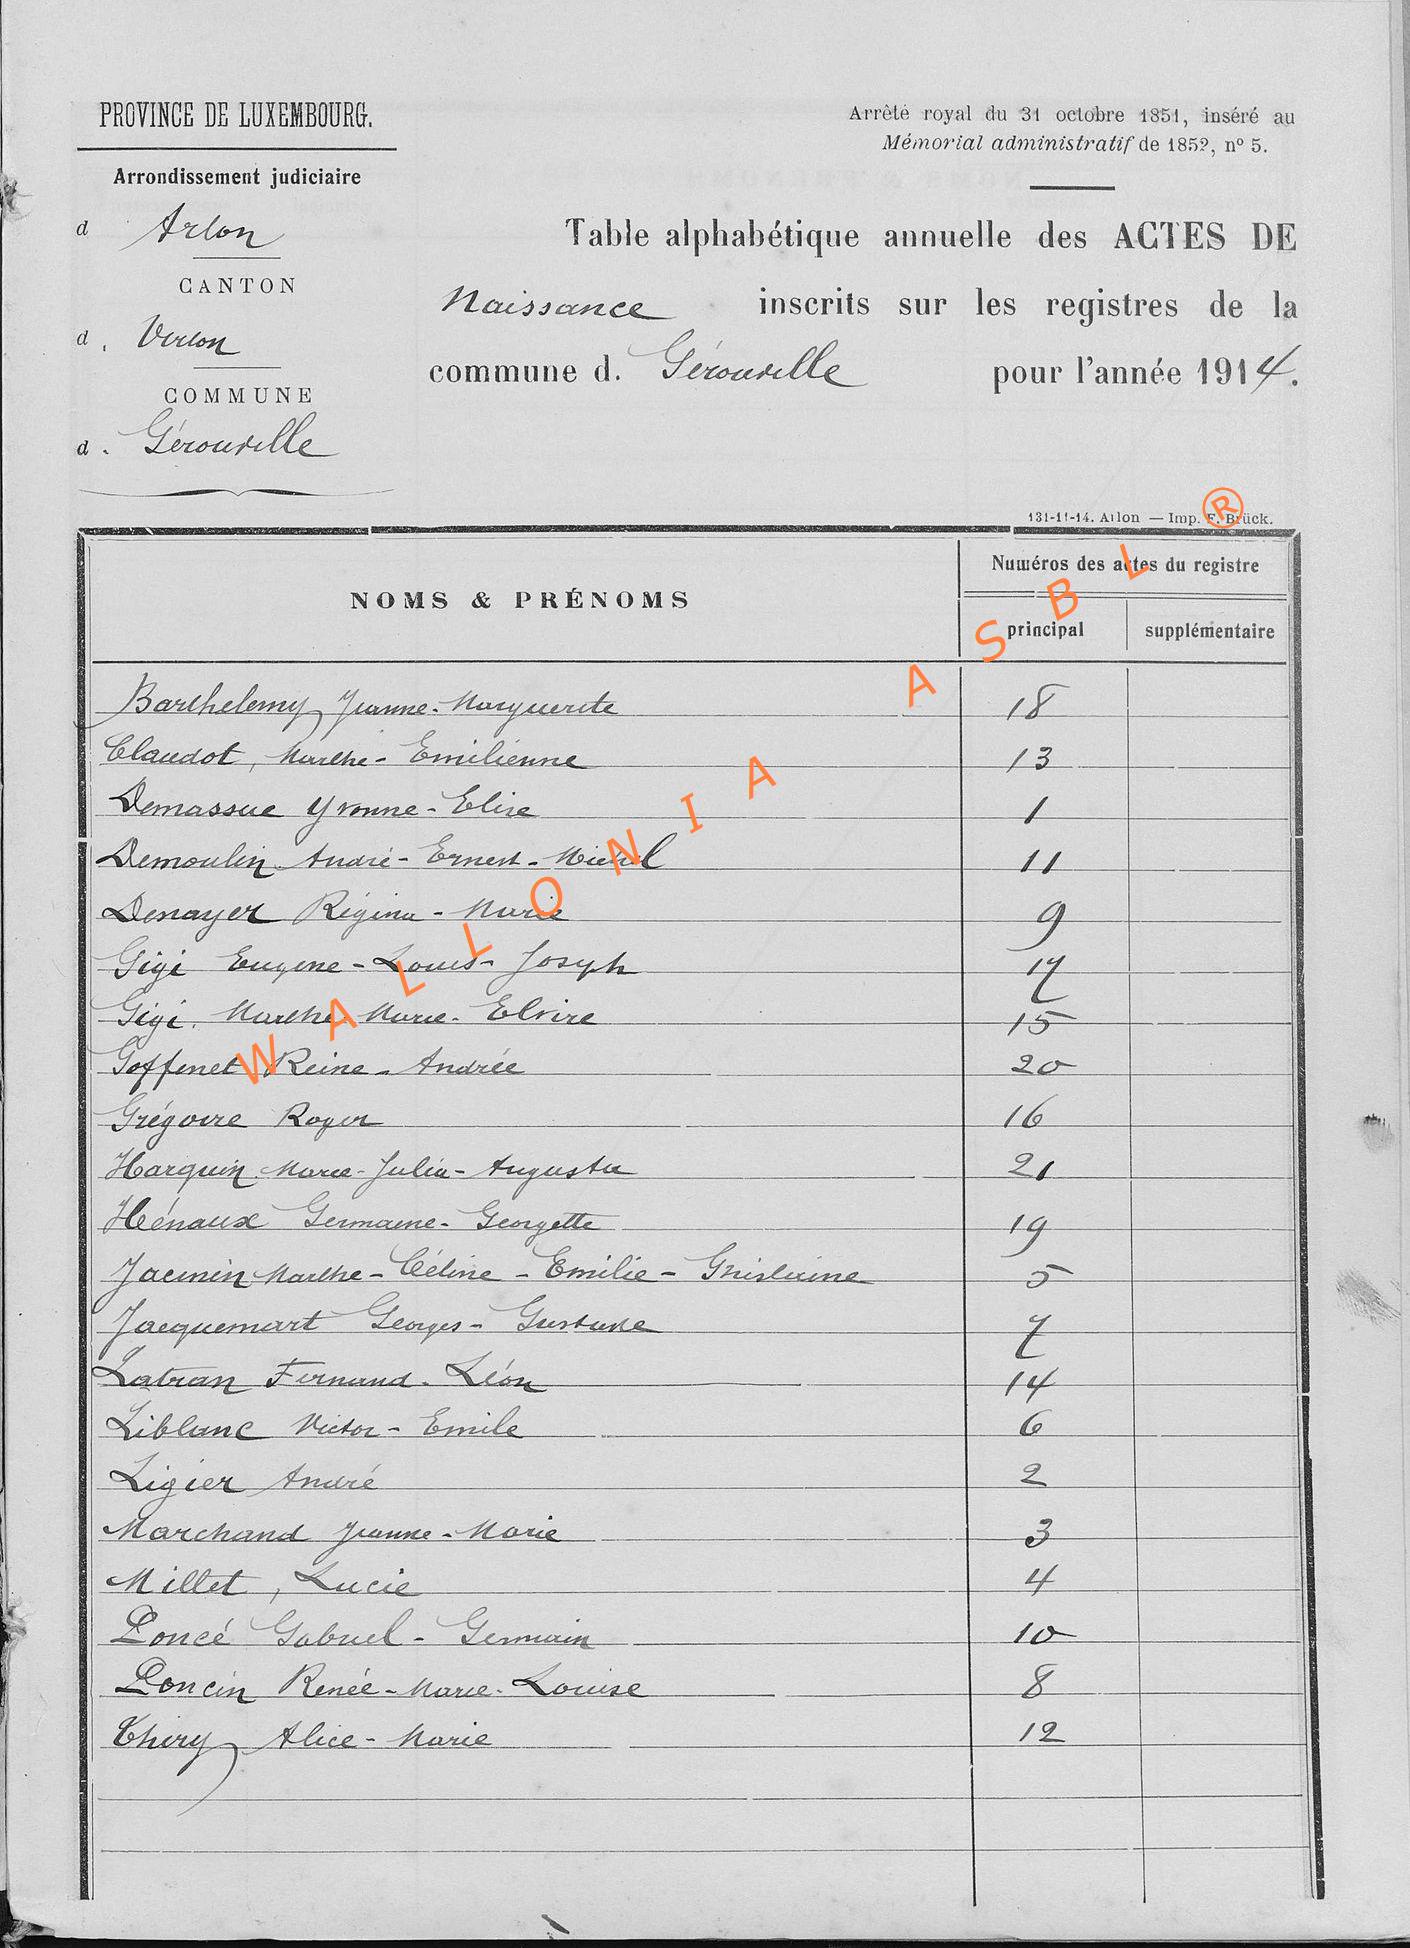 PROVINCE DE LUXEMBOURG.
Arrêté royal du 31 octobre 1851, inséré au
Mémorial administratif de 1852, nº 5.
Arrondissement judiciaire
d Arlon
CANTON
d. Virton
COMMUNE
d. Gérouville
Table alphabétique annuelle des ACTES DE
Naissance inscrits sur les registres de la
commune d. Gérouville pour l'année 1914.
131-11-14. Arlon — Imp. F. Brück.
NOMS & PRÉNOMS
Numéros des actes du registre
principal supplémentaire
Barthelemy Jeanne-Marguerite 18
Claudot, Marthe-Emilienne 13
Demassue Yvonne-Elise 1
Demoulin André-Ernest-Michel 11
Denayer Régina-Marie 9
Gigi Eugene-Louis-Joseph 17
Gigi Marthe-Marie-Elvire 15
Goffinet Reine-Andrée 20
Grégoire Roger 16
Harquin Marie-Julia-Augusta 21
Hénaux Germaine-Georgette 19
Jacmin Marthe-Céline-Emilie-Ghislaine 5
Jacquemart Georges-Gustave 7
Latran Fernand-Léon 14
Liblanc Victor-Emile 6
Ligier André 2
Marchand Jeanne-Marie 3
Millet, Lucie 4
Poncé Gabriel-Germain 10
Poncin Renée-Marie-Louise 8
Thiry Alice-Marie 12
WALLONIA ASBL ®